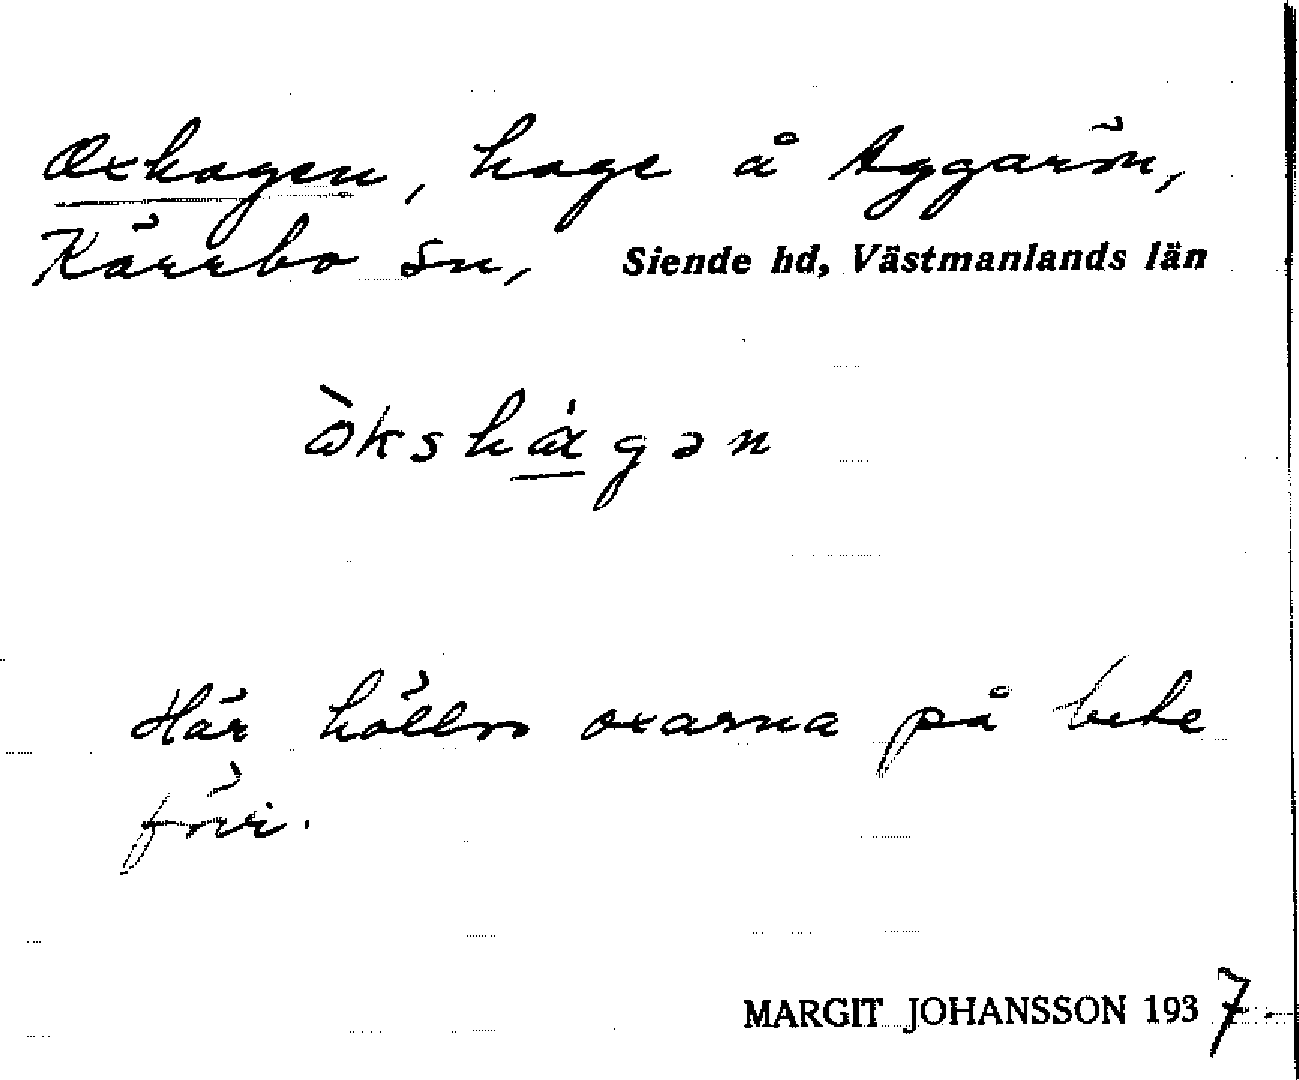 Oxhagen, hage å Aggarön,
Kärrbo sn, Siende hd, Västmanlands län
ɷ̀kshɑ́gən
Här hölls oxarna på bete
förr.
MARGIT JOHANSSON 1937